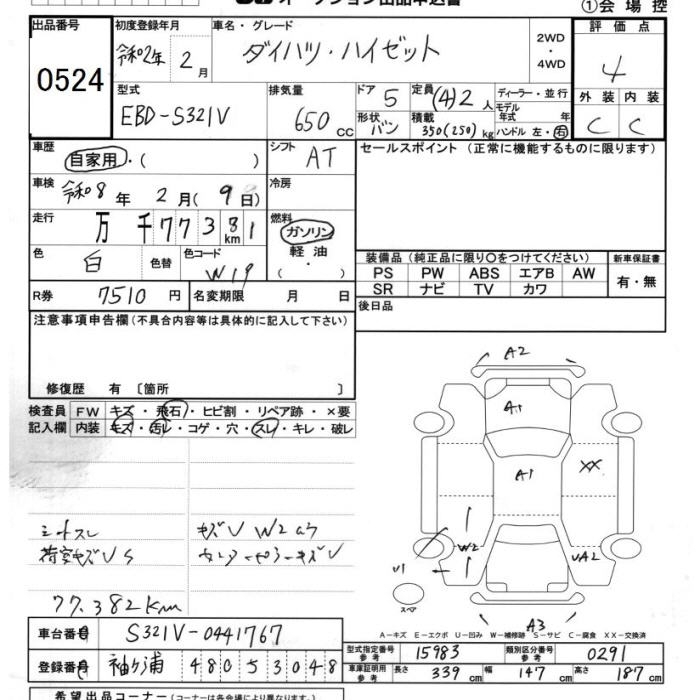 ①会場控
出品番号 初度登録年月 車名・グレード 2WD ・ 4WD 評価点
0524 令和2年 2月 ダイハツ・ハイゼット 4
型式 排気量 ドア 5 定員 (4)2人 ディーラー・並行 外装 内装
EBD-S321V 650cc 形状 バン 積載 350(250)kg モデル年式 年 ハンドル 左・右 C C
車歴 自家用・( ) シフト AT セールスポイント(正常に機能するものに限ります)
車検 令和8年 2月(9日) 冷房
走行 万千77381km 燃料 ガソリン・軽油・( )
色 白 色替 色コード W19
装備品(純正品に限り〇をつけてください) 新車保証書
PS PW ABS エアB AW 有・無
SR ナビ TV カワ
R券 7510円 名変期限 月 日 後日品
注意事項申告欄(不具合内容等は具体的に記入して下さい)
修復歴 有〔箇所 〕
検査員 FW キズ・飛石・ヒビ割・リペア跡・×要
記入欄 内装 キズ・汚レ・コゲ・穴・スレ・キレ・破レ
A2
A1
A1 XX
W2 UA2
U1
スペア
A3
シートスレ キズU W2
荷室キズUS キズU
77,382km
A－キズ E－エクボ U－凹み W－補修跡 S－サビ C－腐食 XX－交換済
車台番号 S321V-0441767
型式指定番号 参考 15983 類別区分番号 参考 0291
登録番号 袖ケ浦 480 5 3048
車庫証明用 参考 長さ 339cm 幅 147cm 高さ 187cm
希望出品コーナー(コーナーは各会場により異なります)